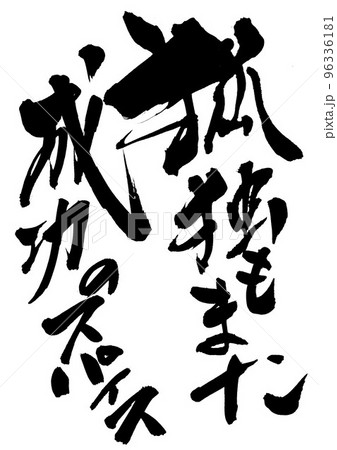 孤独もまた
成功のスパイス
PIXTA
pixta.jp - 96336181